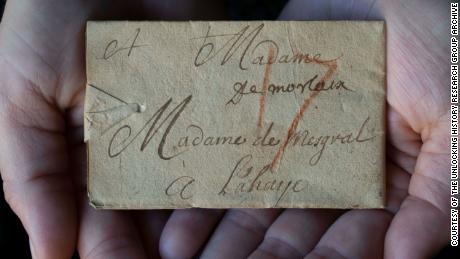 A Madame
De morlaix
Madame de Mesgral
à Lahaye
17
COURTESY OF THE UNLOCKING HISTORY RESEARCH GROUP ARCHIVE